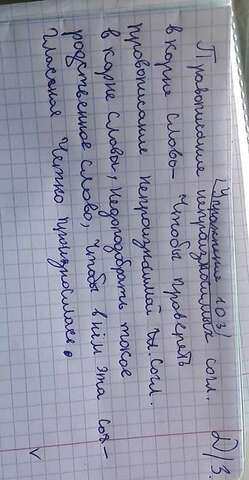 Д/З.
(Упражнение 103)
Правописание непроизносимых согл.
в корне слово - Чтобы проверять
правописание непроизносимой бк. согл.
в корне слова, недоподобрать такое
родственное слово, чтобы в нём эта сог-
гласная четко произносилась.